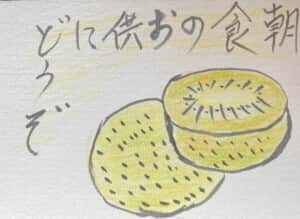 朝食のお供に
どうぞ